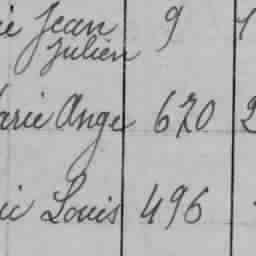 Jean 9
Julien
Marie Ange 620
Louis 496